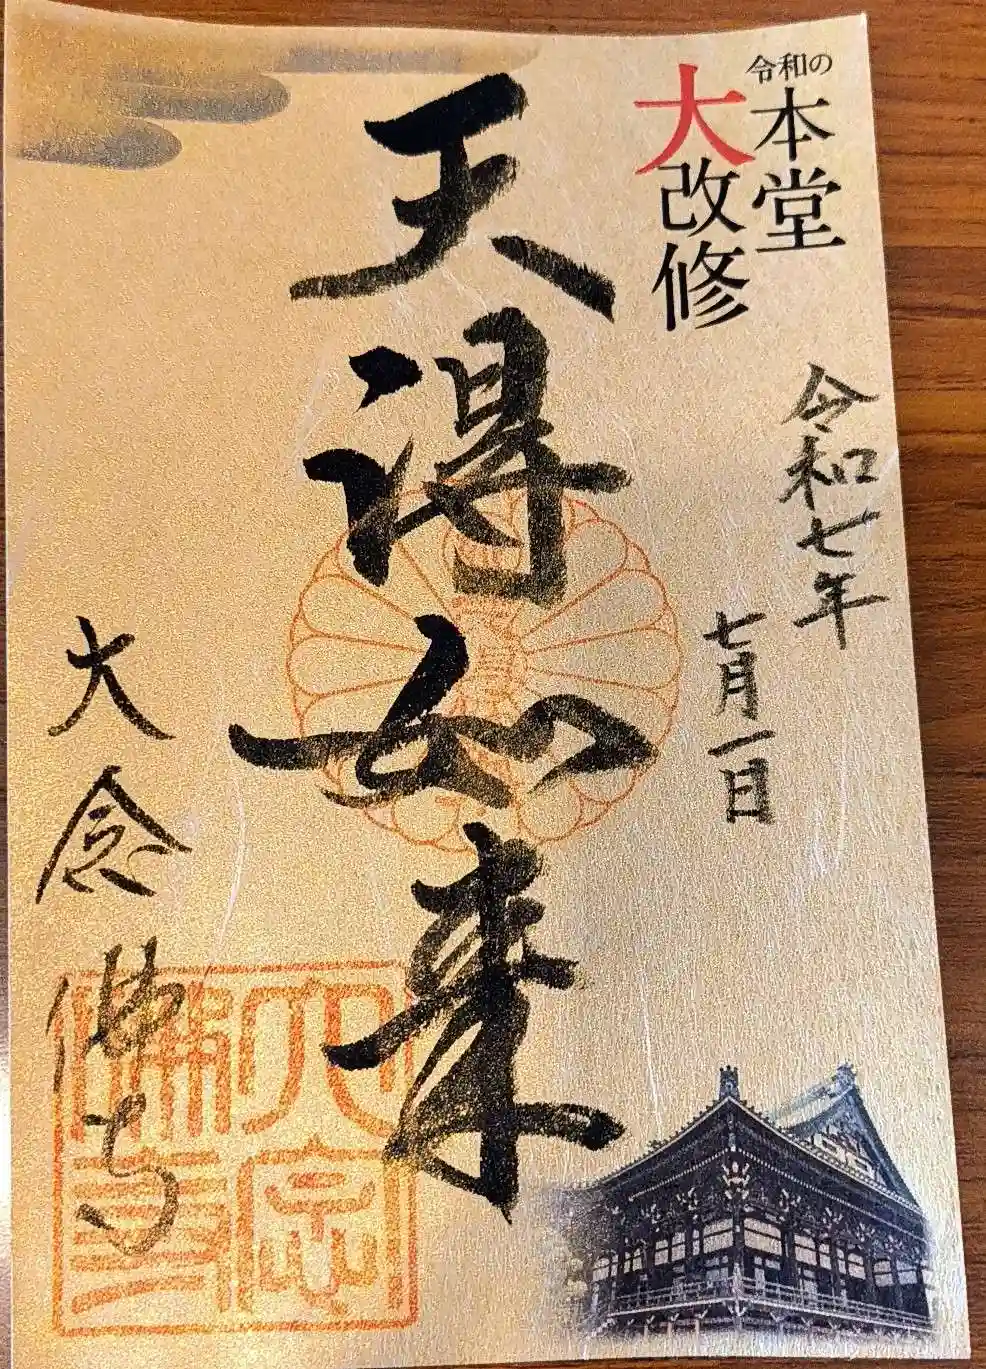 令和の
本堂
大改修
令和七年
七月一日
天得如来
大念佛寺
大念
佛寺